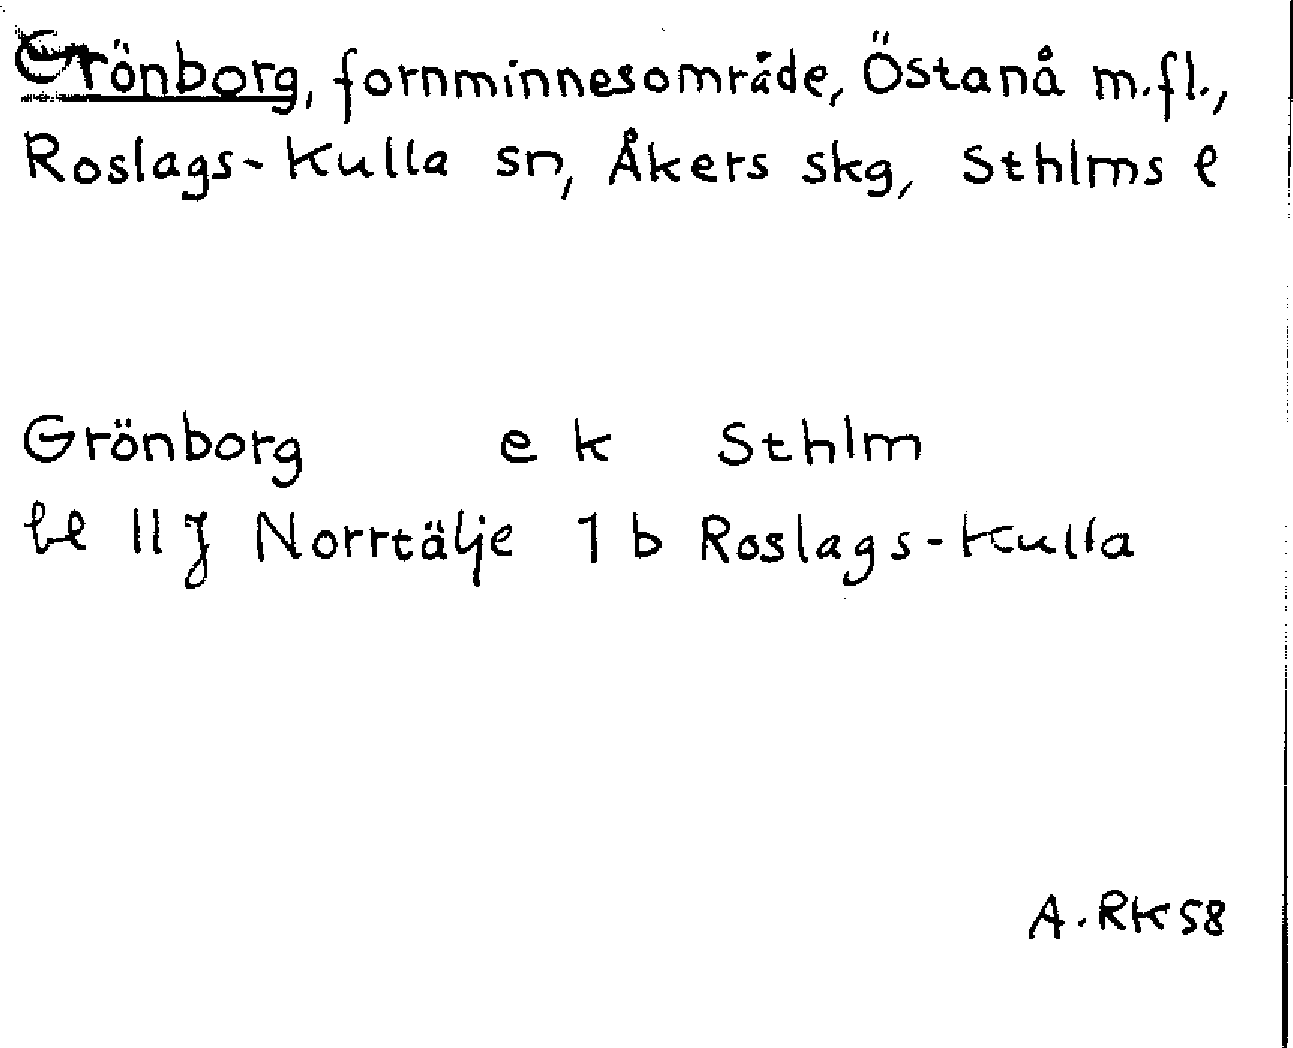 Grönborg, fornminnesområde, Östanå m.fl.,
Roslags-Kulla sn, Åkers skg, Sthlms l
Grönborg e k Sthlm
bl 11 J Norrtälje 1 b Roslags-Kulla
A.RK58